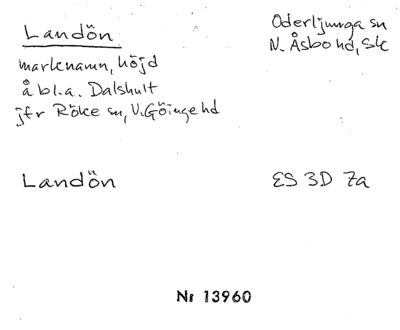 Landön
Oderljunga sn
N. Åsbo hd, Sk
marknamn, höjd
å bl.a. Dalshult
jfr Röke sn, V. Göinge hd
Landön
ES 3D 7a
Nr 13960